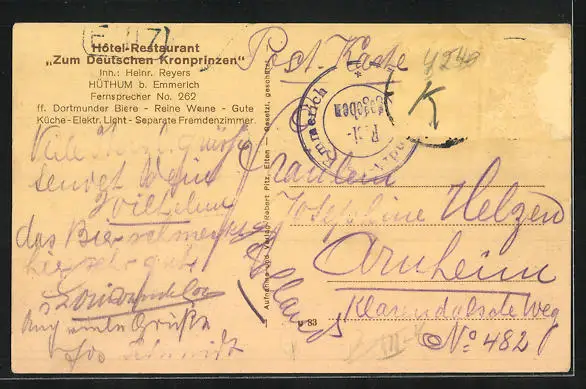 Hôtel-Restaurant
„Zum Deutschen Kronprinzen“
Inh.: Heinr. Reyers
HÜTHUM b. Emmerich
Fernsprecher No. 262
ff. Dortmunder Biere - Reine Weine - Gute
Küche - Elektr. Licht - Separate Fremdenzimmer.
Viele Herzl. Grüße
sendet Dein
Wilhelm
das Bier schmeckt
hier sehr gut
Auch viele Grüße
Schmidt
Aufnahme und Verlag Robert Pitz, Elten — Gesetzl. geschützt
Post-Karte
Emmerich
Post-
K
Fräulein
Josephine Helzen
Arnheim
Klarendalsche Weg
No 482
Holland
83